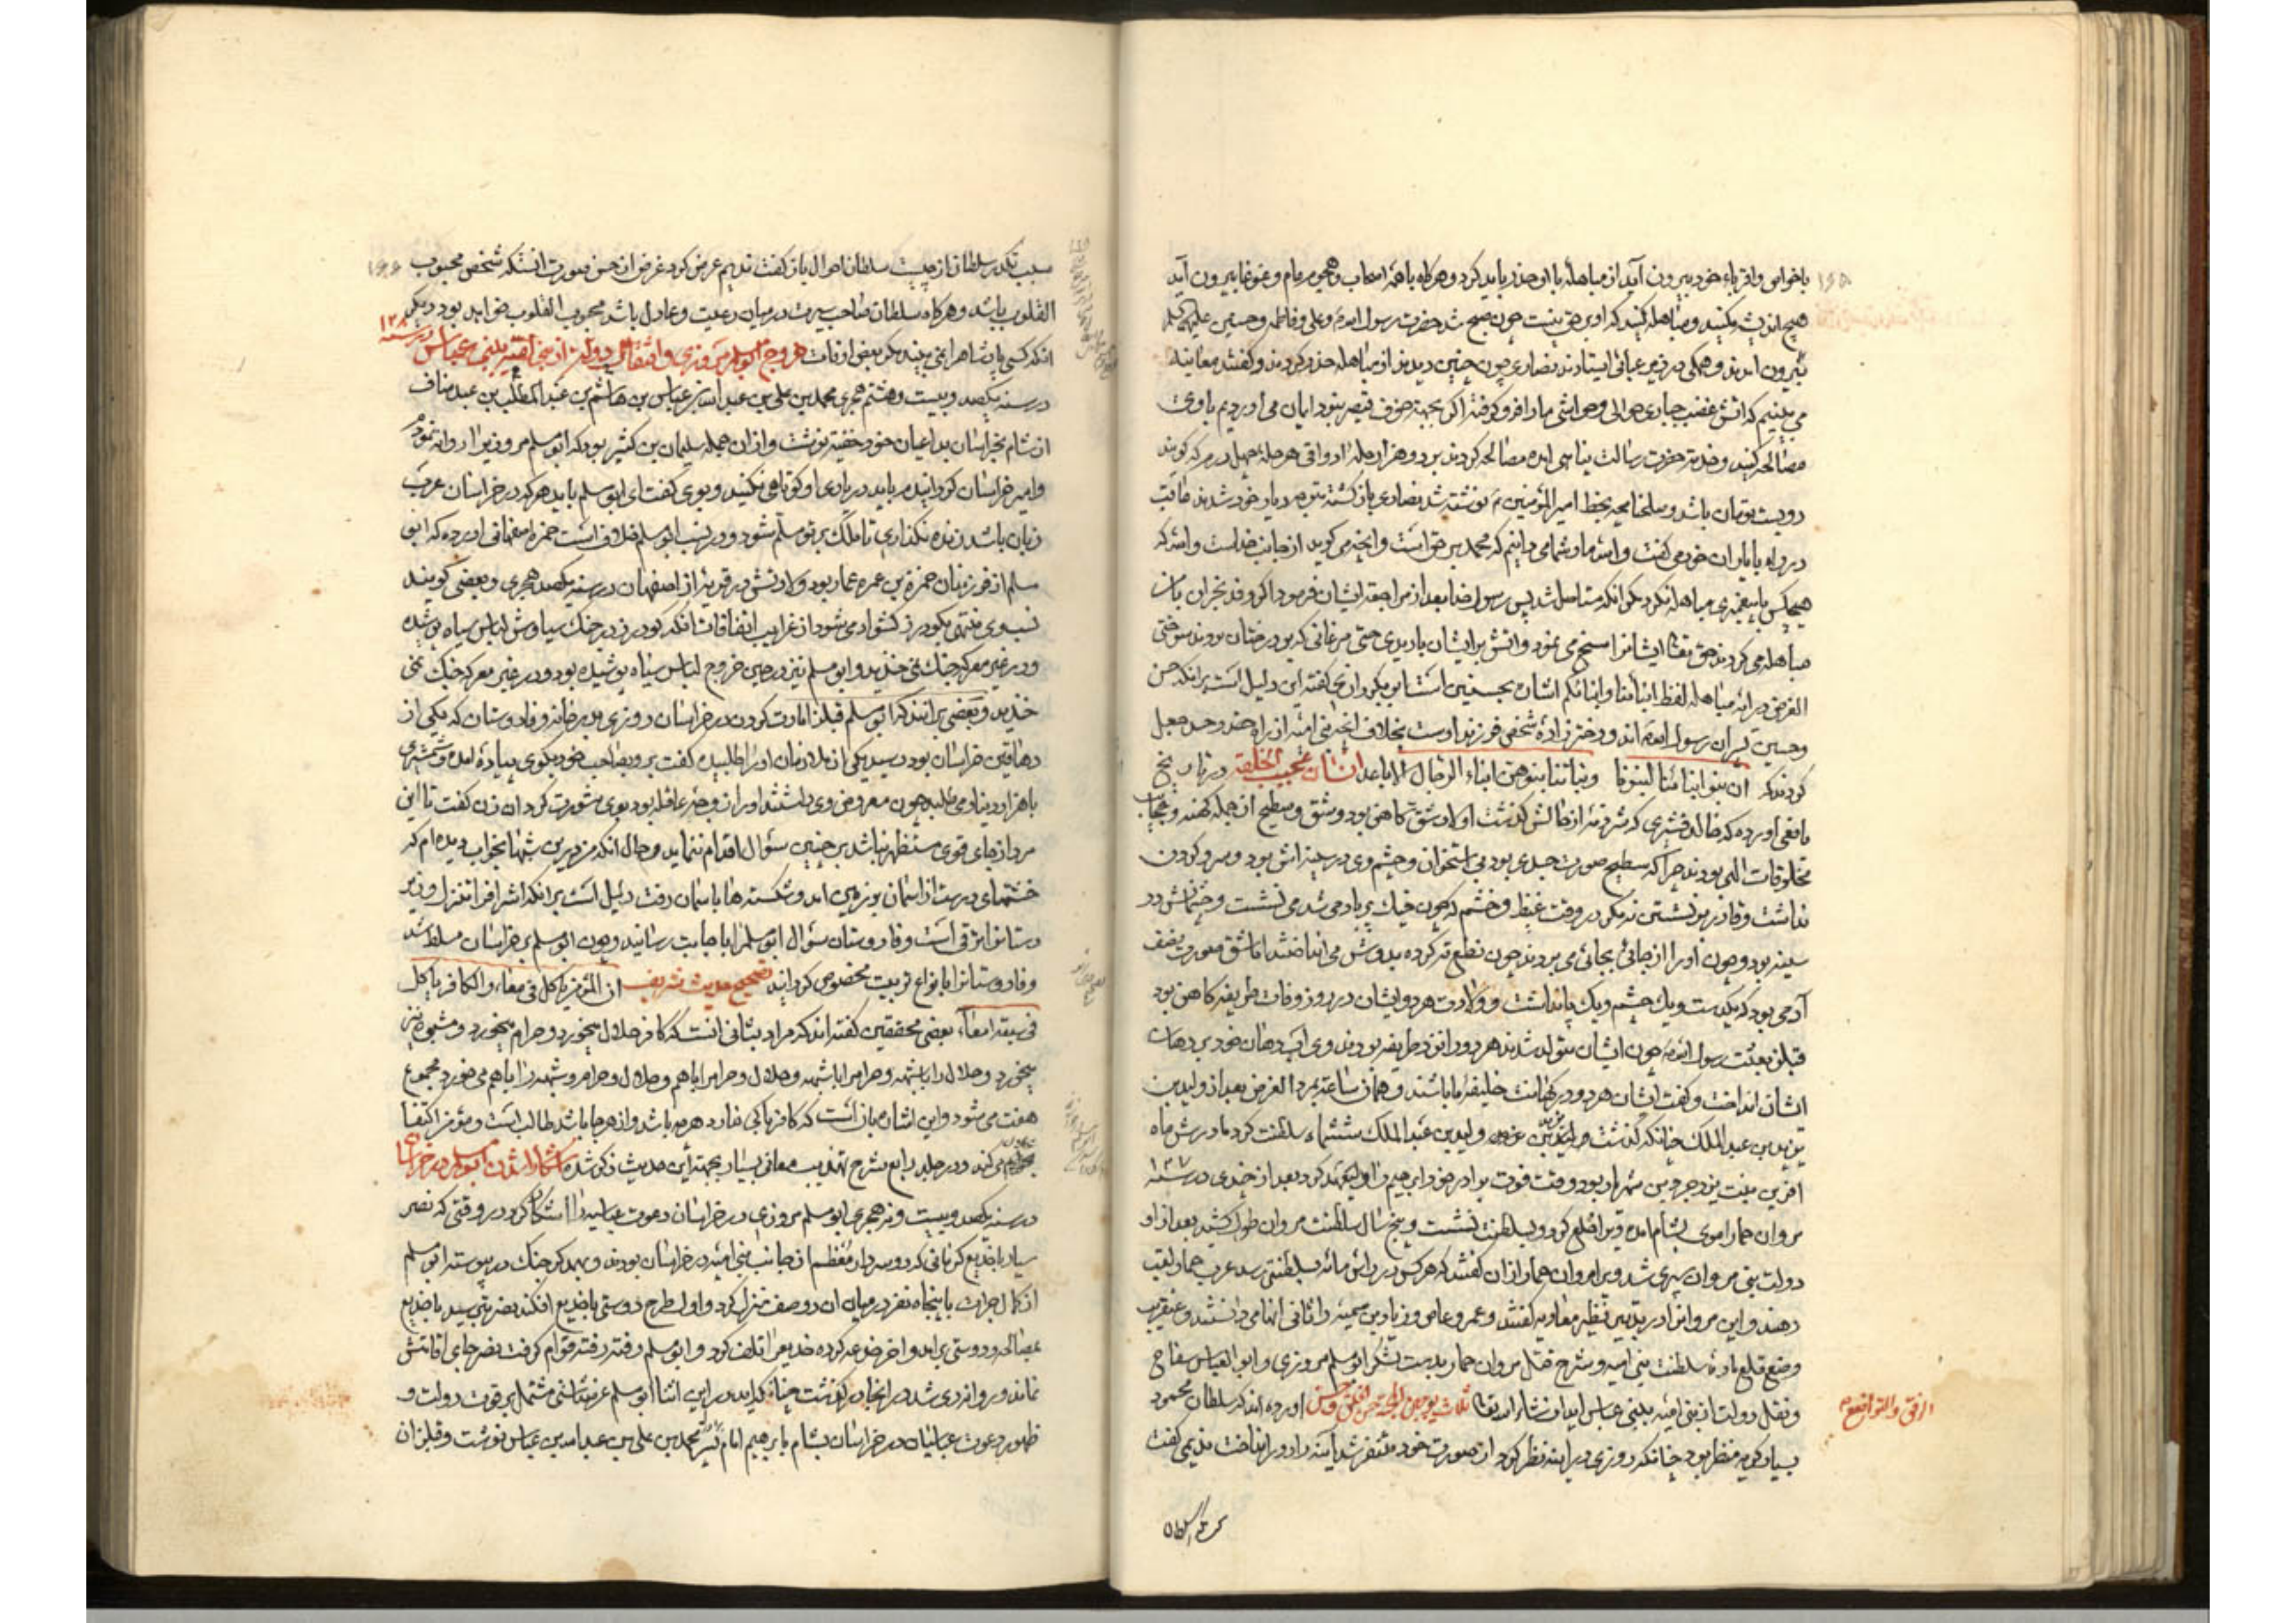 باخواص و اقرباء خود بیرون آید از مباهله با او حذر باید کرد و هرکاه با همه اصحاب و هجوم عام و غوغا بیرون آید
هیچ اندیشه مکنید و مباهله کنید که او بر حق نیست چون صبح شد حضرت رسول الله و علی و فاطمه و حسنین علیهم
بیرون آمدند و همکی در زیر عبائی ایستادند نصاری چون چنین دیدند از مباهله حذر کردند و کفتند معاینه
می بینیم که آتش غضب جباری حوالی و حواشی ما را فرو کرفته اکر بجهة خوف قیصر نبود ایمان می آوردیم با وی
مصالحه کنید و خدمة حضرت رسالت پناهی آمده مصالحه کردند بر دو هزار حله اواقی هر حله چهل درم که کویند
دویست تومان باشد و صلحنامچه بخط امیر المؤمنین نوشته شد نصاری باز کشته متوجه دیار خود شدند عاقب
در راه با یاران خود می کفت والله ما و شما می دانیم که محمد بر حق است و آنچه می کوید از جانب خداست والله که
هیچکس با پیغمبری مباهله نکرد مکر آنکه مستاصل شد پس رسول خدا بعد از مراجعة ایشان فرمود اکر وفد نجران با من
مباهله می کردند حق تعالی ایشانرا مسخ می نمود و آتش بر ایشان باریدی حتی مرغانی که بر درختان بودند سوختی
الغرض در آیه مباهله لفظ ابنائنا و ابنائکم اشاره بحسنین است این دلیل است بر آنکه حسن
و حسین پسران رسول الله اند و دختر زاده شخص فرزند اوست بخلاف آنچه بنی امیه از راه حقد و حسد جعل
کردند که ان بنو ابنائنا لبنونا و بناتنا بنوهن ابناء الرجال الاباعد انسان عجیب الخلقه در تاریخ
یافعی آورده که خالد قشیری که از حالش کذشت اولاد شق کاهن بود و شق و سطیح از جمله کهنه و عجایب
مخلوقات الهی بودند چرا که سطیح صورت جسدی بود بی استخوان و چشم وی در سینه اش بود و سر و کردن
نداشت و قادر بر نشستن نه مکر در وقت غیظ و خشم که چون خیک پر باد می شد می نشست و چشمانش در
سینه بود و چون او را از جائی بجائی می بردند چون نطع ته کرده بدوش می انداختند اما شق صورت نصف
آدمی بود که یکدست و یک چشم و یک پا نداشت و ولادت هر دو ایشان در روز وفات طریفه کاهن بود
قبل از بعثت رسول الله چون ایشان متولد شدند هر دو را نزد طریفه بردند وی آب دهان خود بر دهان
ایشان انداخت و کفت ایشان هر دو در کهانت خلیفه ما باشند و همان ساعة بمرد الغرض بعد از ولید بن
یزید بن عبد الملک چنانکه کذشت ولید بن عبد الملک ششماه سلطنت کرد مادرش ماه
آفرین بنت یزدجرد بن شهریار بود و وقت فوت برادر خود ابراهیم را ولیعهد کرد بعد از چندی در سنه ۱۲۷
مروان حمار اموی بشام آمده ویرا خلع کرد و بسلطنت نشست و پنج سال سلطنت مروان طول کشید بعد از او
دولت بنی مروان سپری شد و ویرا مروان حمار از آن کفتند که هر کس در رأس مائه بسلطنتی رسد عرب حمار لقب
دهند و این مروانرا در تدبیر نظیر معاویه کفتند و عمرو عاص و زیاد بن سمیه را ثانی آنها می دانستند و عنقریب
وضع قلع ماده سلطنت بنی امیه و شرح قتل مروان حمار بدست لشکر ابو مسلم مروزی و ابو العباس سفاح
و نقل دولت از بنی امیه ببنی عباس بیاید انشاء الله تعالی ثلث یوجبن المحبة حسن الخلق و حسن الرفق والتواضع آورده اند که سلطان محمود
بسیار کریه منظر بود چنانکه روزی در آینه نظر کرد از صورت خود متنفر شد آینه را دور انداخت ندیمی کفت
سبب تکدر سلطان از چیست سلطان احوال باز کفت ندیم عرض کرد غرض از حسن صورت آنستکه شخص محبوب
القلوب باشد و هرکاه سلطان صاحب سیرت در میان رعیت و عادل باشد محبوب القلوب خواهد بود دیکر
آنکه کسی پادشاه را نمی بیند مکر بعض اوقات خروج ابو مسلم مروزی و انتقال دولت از بنی امیه ببنی عباس در سنه ۱۲۸
در سنه یکصد و بیست و هشتم هجری محمد بن علی بن عبد الله بن عباس بن هاشم بن عبد المطلب بن عبد مناف
از شام بخراسان بداعیان خود خفیه نوشت و از آن جمله سلیمان بن کثیر بود که ابو مسلم مروزیرا روانه نمودم
و امیر خراسان کردانیدم باید در یاری او کوتاهی نکنید و بوی کفت ای ابو مسلم باید هر که در خراسان عرب
زبان باشد زنده نکذاری تا ملک بر تو مسلم شود و در نسب ابو مسلم خلاف است حمزه اصفهانی آورده که ابو
مسلم از فرزندان حمزة بن عمره عمار بود ولادتش در قریه از اصفهان در سنه یکصد هجری و بعضی کویند
نسب وی منتهی بکودرز کشواد می شود از غرایب اتفاقات آنکه کودرز در جنک سیاوش لباس سیاه پوشیده
و در غیر معرکه جنک نمی خندید و ابو مسلم نیز در حین خروج لباس سیاه پوشیده بود و در غیر معرکه جنک نمی
خندید و بعضی برآنند که ابو مسلم قبل از امارت کردن در خراسان روزی بدر خانه فادوستان که یکی از
دهاقین خراسان بود رسید یکی از ملازمان او را طلبیده کفت برو بصاحب خود بکوی پیاده آمده و شمشیری
با هزار دینار می طلبد چون معروض وی داشتند او را زوجه عاقله بود بوی مشورت کرد آن زن کفت تا این
مرد از جای قوی مستظهر نباشد بر چنین سؤال اقدام ننماید و حال آنکه من در این شبها بخواب دیده ام که
خشتهای درست از آسمان بزمین آمد و شکسته ها بآسمان رفت دلیل است بر آنکه اشرافرا تنزل و زیر
دستانرا ترقی است و فادوستان سؤال ابو مسلمرا باجابت رسانید و چون ابو مسلم بر خراسان مسلط شد
و فادوستانرا بانواع تربیت مخصوص کردانید تصحیح حدیث شریف ان المؤمن یاکل فی معاء والکافر یاکل
فی سبعة امعاء بعضی محققین کفته اند که مراد بثانی آنست که کافر حلال میخورد و حرام میخورد و مشبوه نیز
میخورد و حلال را با شبهه و حرامرا با شبهه و حلال و حرامرا با هم و حلال و حرام و شبهه را با هم می خورد مجموع
هفت می شود و این اشاره بآن است که کافر باکی ندارد هر چه باشد و از هر جا باشد طالب است و مؤمن اکتفا
می کند و در جلد رابع شرح تهذیب معانی بسیار بجهة این حدیث ذکر شده آشکارا شدن ابو مسلم در خراسان
در سنه یکصد و بیست و نه هجری ابو مسلم مروزی در خراسان دعوت عباسیه را آشکارا کرد در وقتی که نصر
سیار با خدیع کرمانی که دو سردار معظم از جانب بنی امیه در خراسان بودند و بهمدیکر جنک در پیوسته ابو مسلم
از کمال جرأت با پنجاه نفر در میان آن دو صف تنزل کرد و اول طرح دوستی با خدیع افکند نصر بن سیار با خدیع
بمصالحه و دوستی برآمد و آخر خدعه کرده خدیعرا تلف کرد و ابو مسلم رفته رفته قوام کرفت نصر جای اقامتش
نماند و روانه ری شد در آنجا در کذشت چنانکه بیاید در این اثنا ابو مسلم عرضداشتی مشتمل بر قوت دولت و
ظهور دعوت عباسیان در خراسان بشام بابرهیم امام پسر محمد بن علی بن عبد الله بن عباس نوشت و قبل از آن